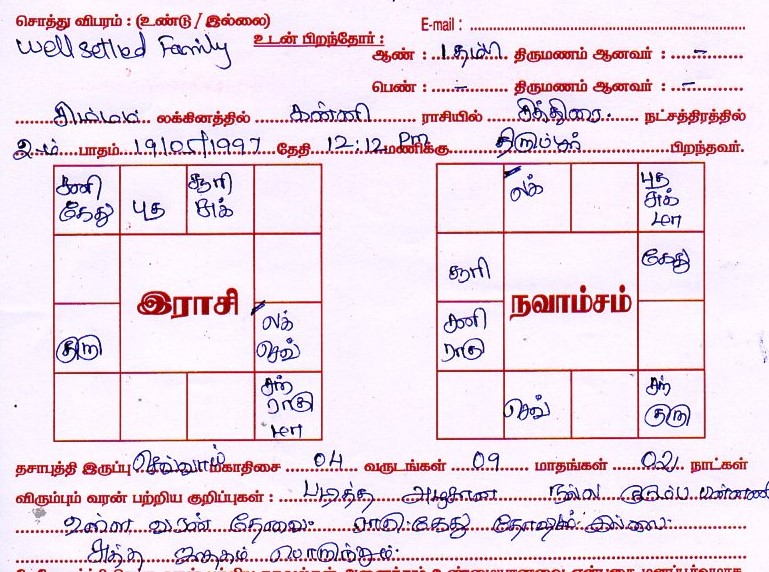 சொத்து விபரம் : (உண்டு / இல்லை) E-mail :
Well settled Family உடன் பிறந்தோர் : ஆண் : 1 தம்பி திருமணம் ஆனவர் : –
பெண் : – திருமணம் ஆனவர் : –
சிம்மம் லக்கினத்தில் கன்னி ராசியில் சித்திரை நட்சத்திரத்தில்
2ம் பாதம் 19/05/1997 தேதி 12:12 Pm மணிக்கு திருப்பூர் பிறந்தவர்.
சனி கேது
புத
சூரி சுக்
குரு
இராசி
லக் செவ்
சந் ராகு மா
லக்
புத சுக் மா
சூரி
கேது
நவாம்சம்
சனி ராகு
செவ்
சந் குரு
தசாபுத்தி இருப்பு செவ்வாய் மகாதிசை 04 வருடங்கள் 09 மாதங்கள் 02 நாட்கள்
விரும்பும் வரன் பற்றிய குறிப்புகள் : படித்த அழகான நல்ல குடும்ப
உள்ள வரன் தேவை. ராகு கேது தோஷம் இல்லை.
சுத்த ஜாதகம் பொருந்தும்.